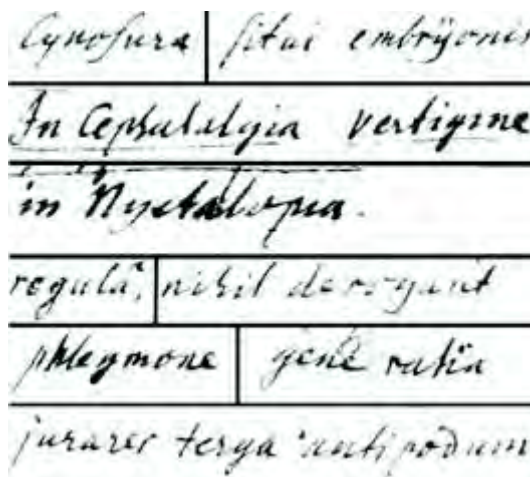 Cynosura situi embrÿonis
In Cephalalgia vertigine
in Nyctalopia.
regulâ, nihil derogant
phlegmone generatia
jurares terga antipodum